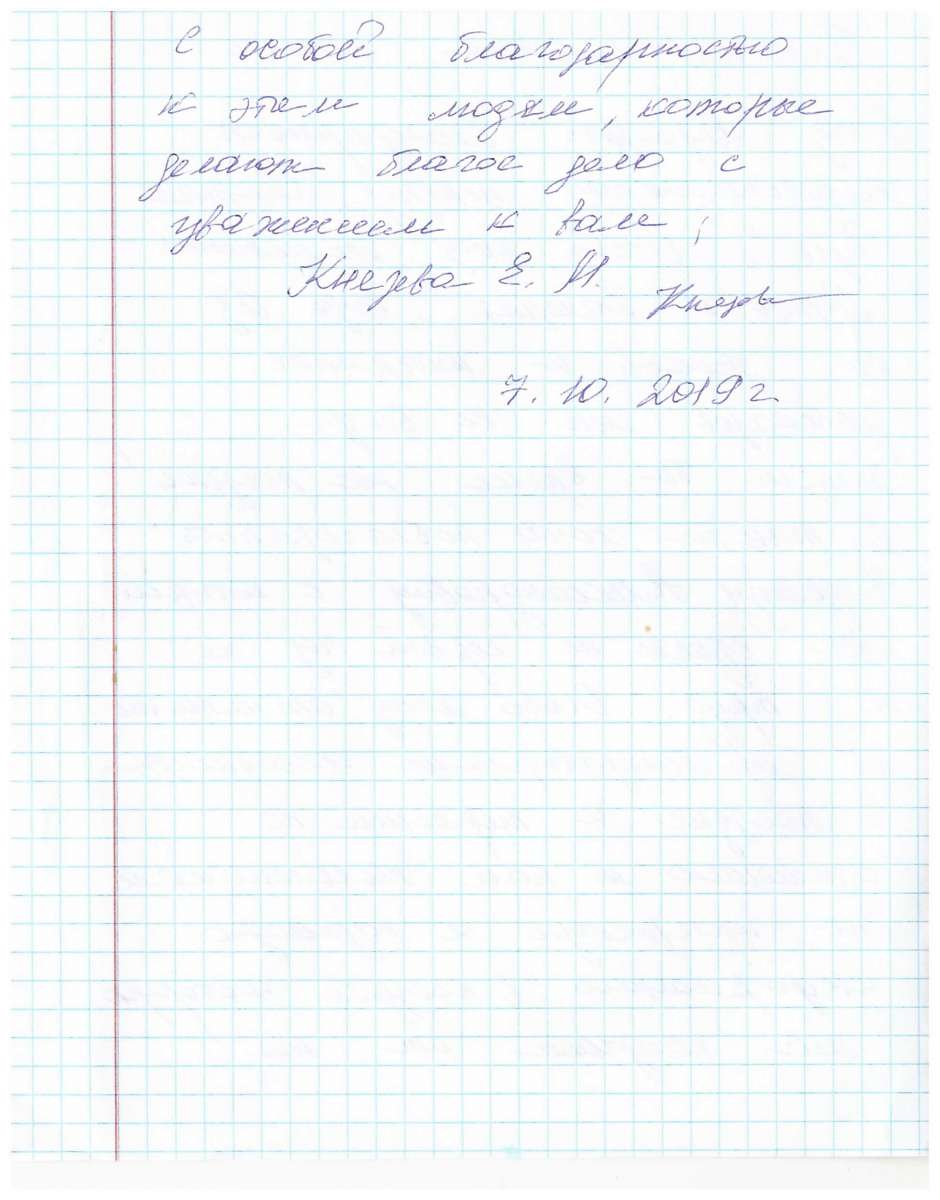 С особой благодарностью
к этим людям, которые
делают благое дело с
уважением к вам,
Князева Е. М.
Князе
7. 10. 2019 г.